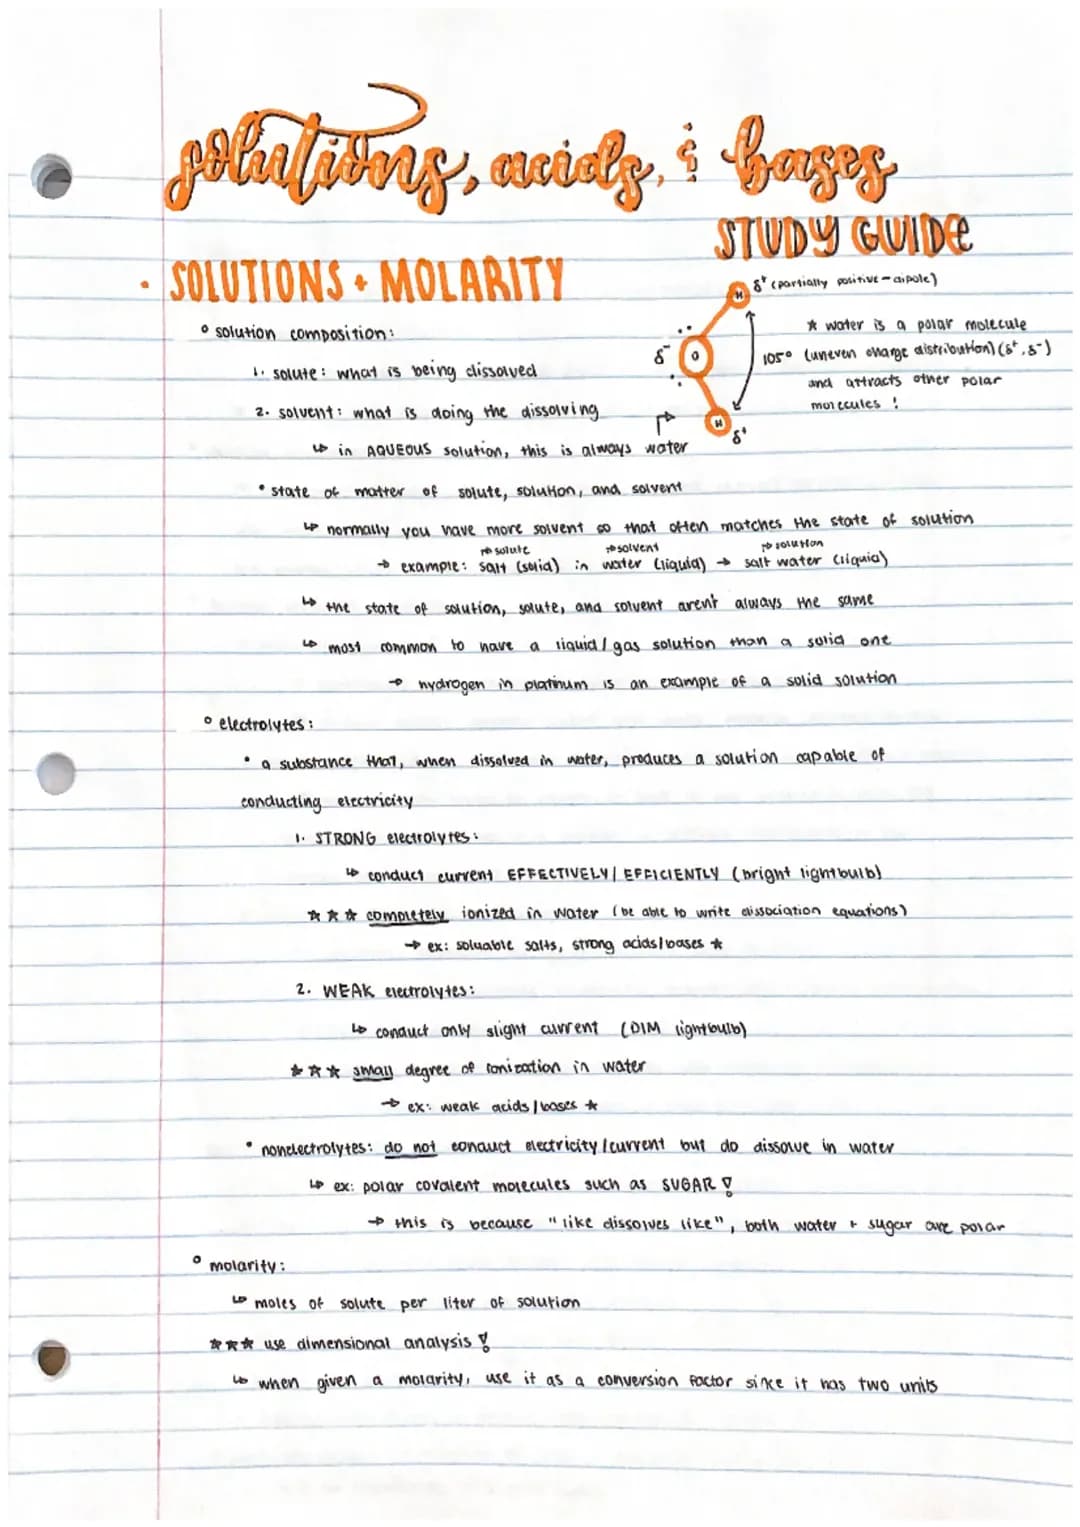 solutions, acids, & bases
STUDY GUIDE
· SOLUTIONS + MOLARITY
H δ⁺ (partially positive - dipole)
° solution composition:
* water is a polar molecule
δ⁻ O 105° (uneven charge distribution) (δ⁺, δ⁻)
1. solute: what is being dissolved
and attracts other polar
molecules !
2. solvent: what is doing the dissolving
H δ⁺
↳ in AQUEOUS solution, this is always water
• state of matter of solute, solution, and solvent
↳ normally you have more solvent so that often matches the state of solution
↱ solute ↱ solvent ↱ solution
→ example: salt (solid) in water (liquid) → salt water (liquid)
↳ the state of solution, solute, and solvent aren't always the same
↳ most common to have a liquid/gas solution than a solid one
→ hydrogen in platinum is an example of a solid solution
° electrolytes:
• a substance that, when dissolved in water, produces a solution capable of
conducting electricity
1. STRONG electrolytes:
↳ conduct current EFFECTIVELY/EFFICIENTLY (bright lightbulb)
★★★ completely ionized in water (be able to write dissociation equations)
→ ex: soluable salts, strong acids/bases ★
2. WEAK electrolytes:
↳ conduct only slight current (DIM lightbulb)
★★★ small degree of ionization in water
→ ex: weak acids/bases ★
• nonelectrolytes: do not conduct electricity/current but do dissolve in water
↳ ex: polar covalent molecules such as SUGAR !
→ this is because "like dissolves like", both water + sugar are polar
° molarity:
↳ moles of solute per liter of solution
★★★ use dimensional analysis !
↳ when given a molarity, use it as a conversion factor since it has two units